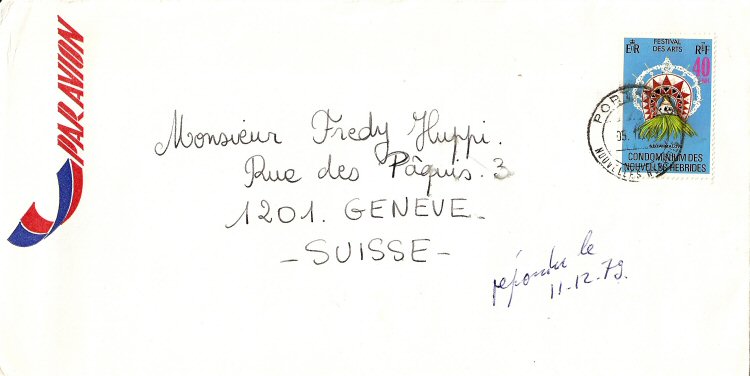 PAR AVION
Monsieur Fredy Huppi.
Rue des Pâquis. 3
1201. GENEVE-
-SUISSE-
répondu le
11-12.79.
FESTIVAL
DES ARTS
E R
RF
40
CONDOMINIUM DES
NOUVELLES HEBRIDES
PORT
05. 1
NOUVELLES H